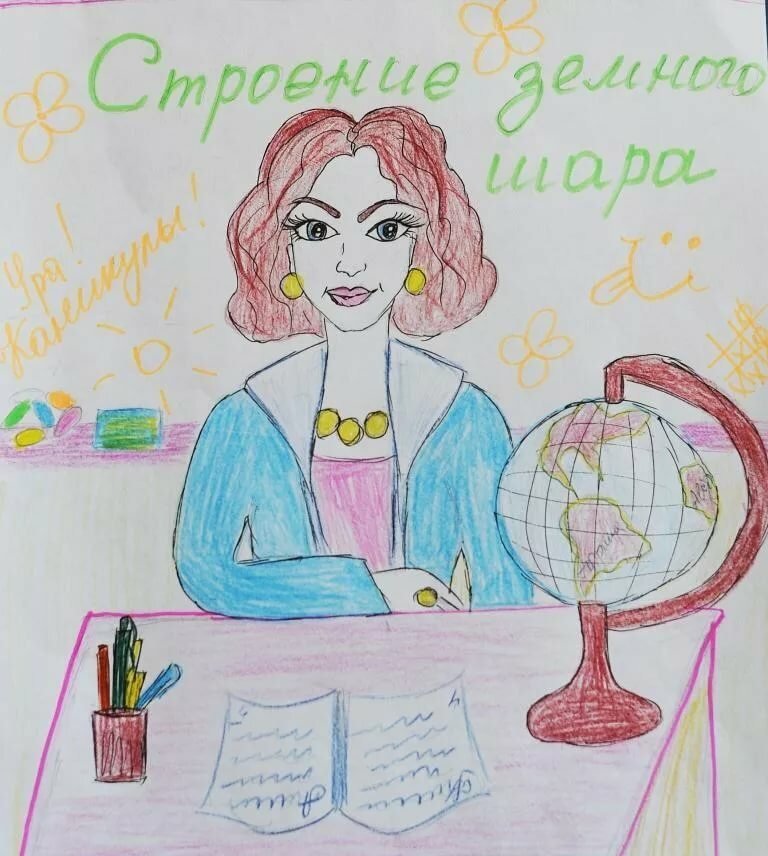 Строение земного
шара
Ура!
Каникулы!